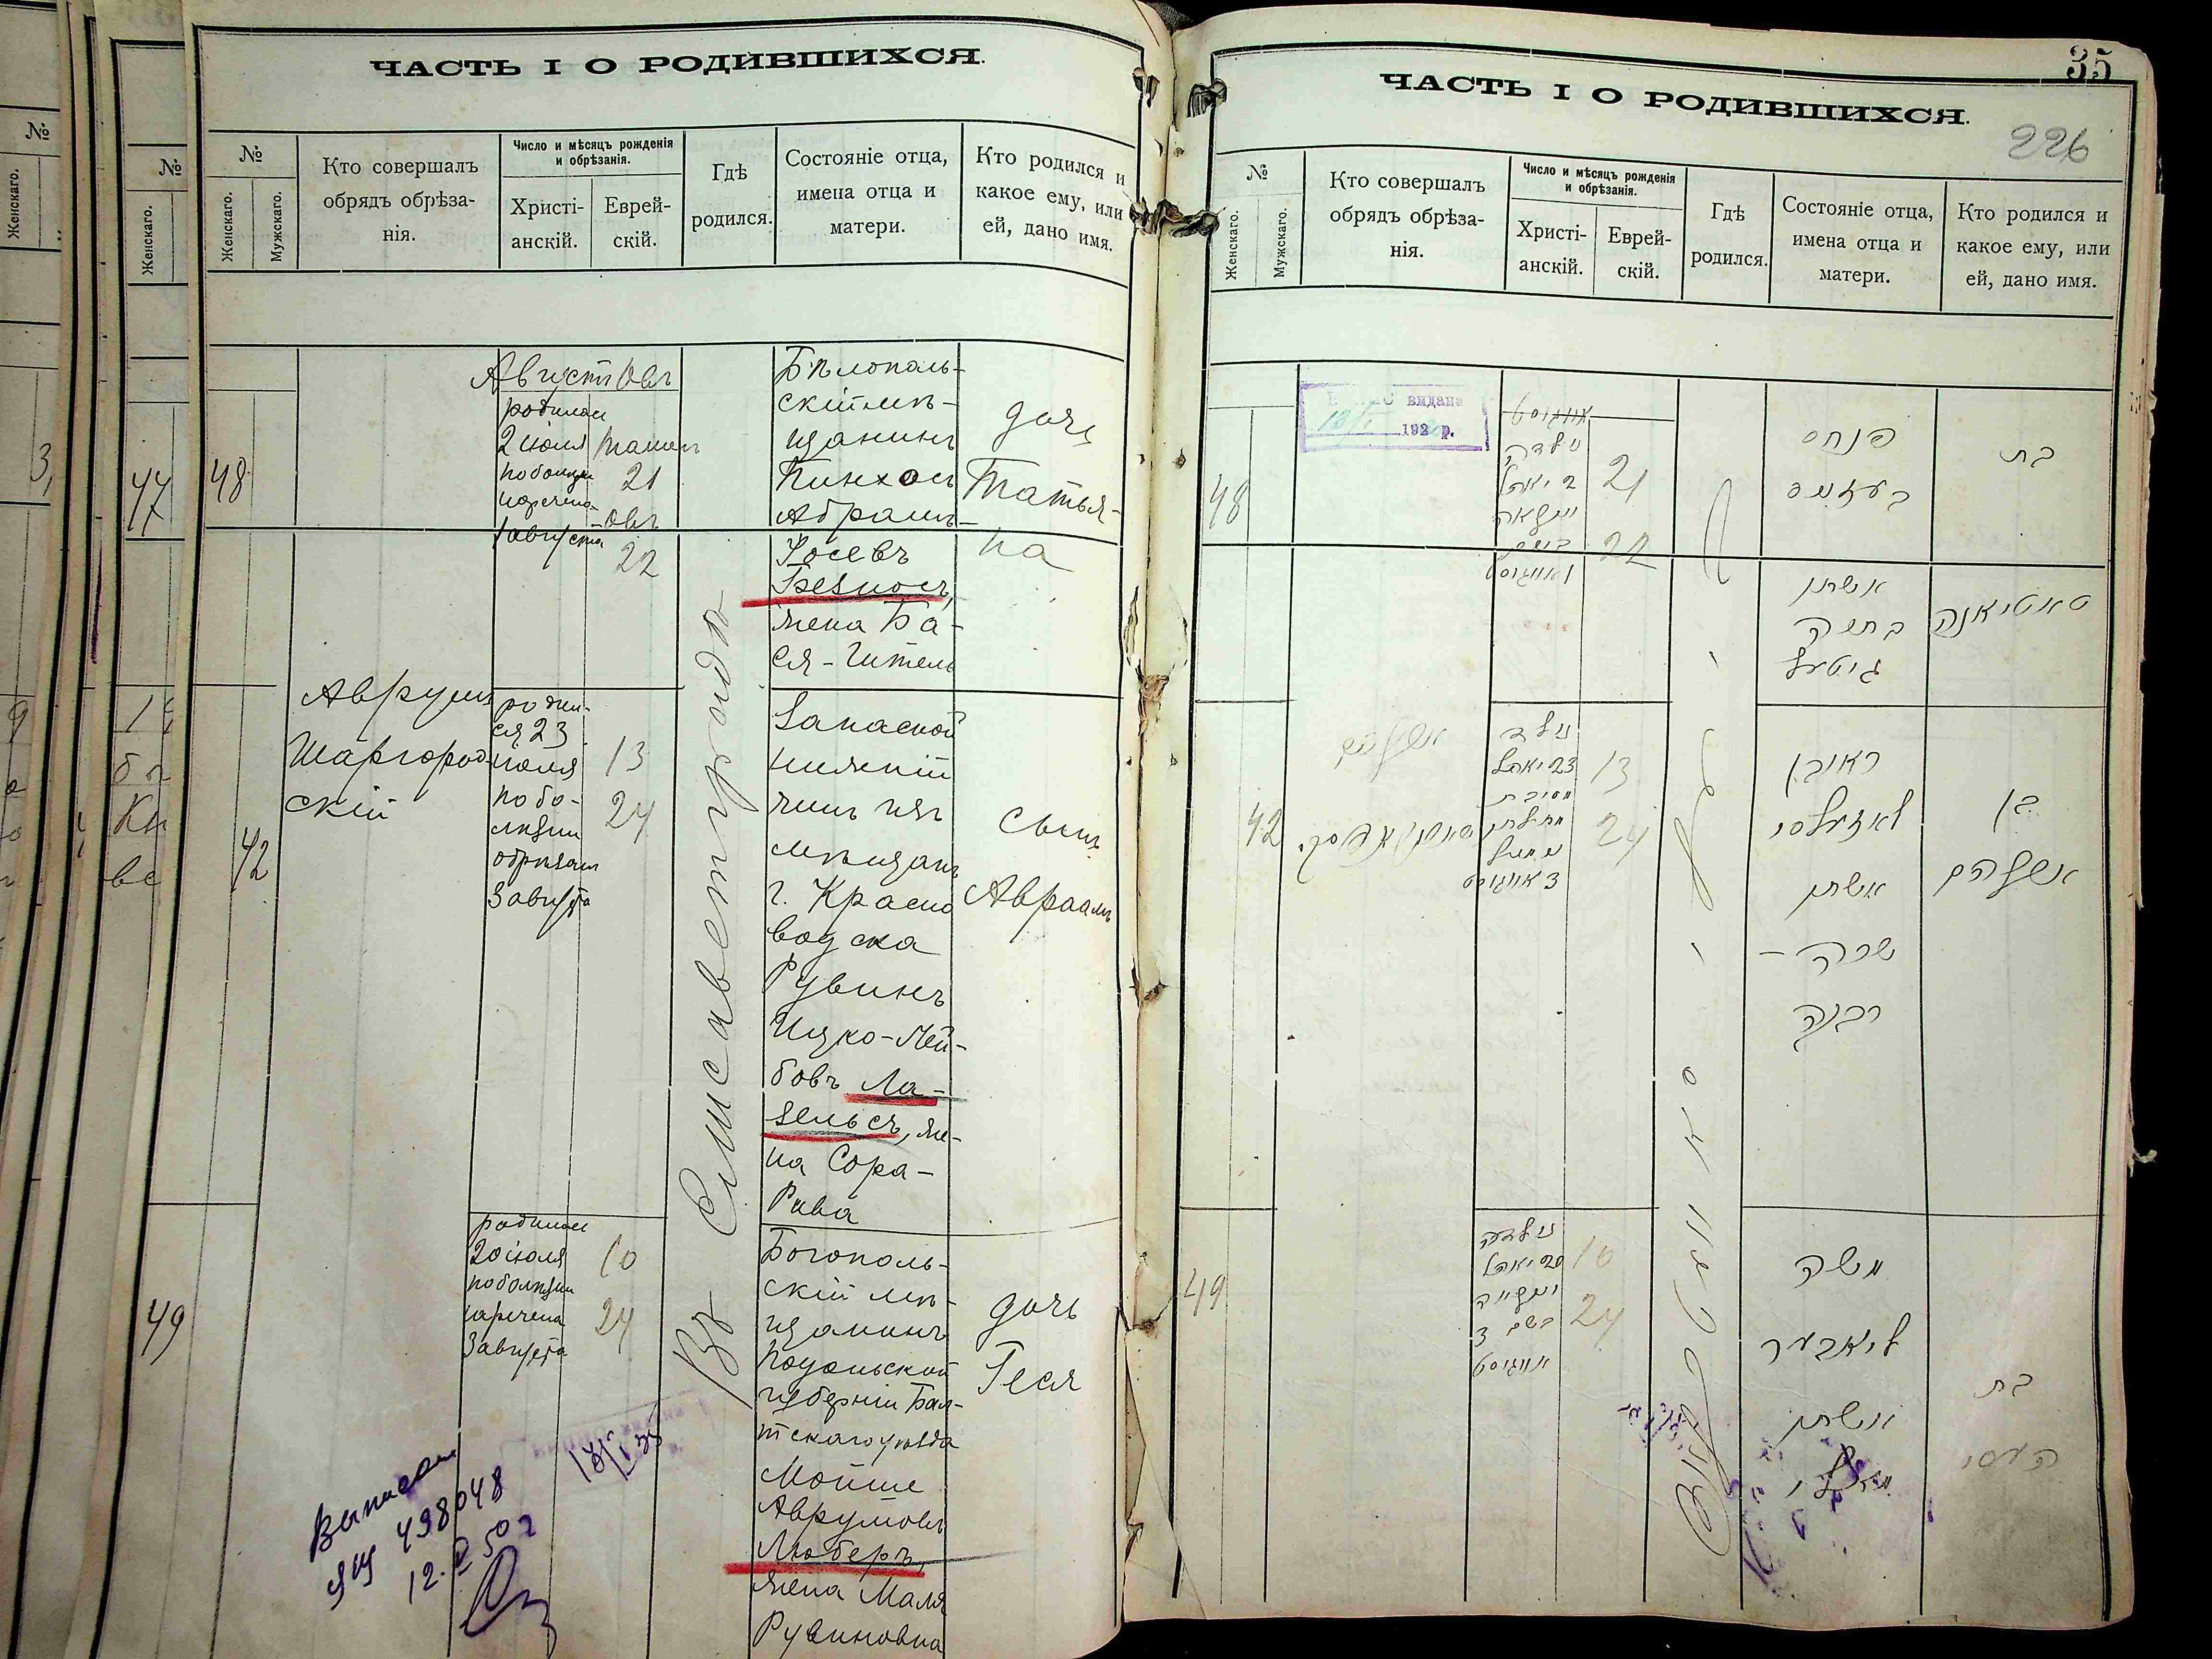 ЧАСТЬ I О РОДИВШИХСЯ.
№
Женскаго.
Мужскаго.
Кто совершалъ
обрядъ обрѣза-
нія.
Число и мѣсяцъ рожденія
и обрѣзанія.
Христі-
анскій.
Еврей-
скій.
Гдѣ
родился.
Состояніе отца,
имена отца и
матери.
Кто родился и
какое ему, или
ей, дано имя.
48
Августъ Овъ
родилась
2 июля
по болѣзни
наречена
1 августа
Тамузъ
21
Овъ
22
Въ Елисаветградѣ
Бѣлополь-
скій мѣ-
щанинъ
Пинхосъ
Абрамъ-
Іосевъ
Безносъ,
жена Ба-
ся-Гитель
дочь
Татья-
на
42
Аврумъ
Шаргород-
скій
родил-
ся 23
июля
по бо-
лѣзни
обрѣзанъ
3 августа
13
24
Запасной
нижній
чинъ изъ
мѣщанъ
г. Красно
водска
Рувинъ
Ицко-Лей-
бовъ Ла-
зельсъ, же-
на Сора-
Рива
сынъ
Авраамъ
49
родилась
20 июля
по болѣзни
наречена
3 августа
10
24
Богополь-
скій мѣ-
щанинъ
Подольской
губерніи Бал-
тскаго уѣзда
Мойше
Аврумовъ
Люберъ,
жена Маля
Рувиновна
дочь
Геся
498048
35
226
ЧАСТЬ I О РОДИВШИХСЯ.
№
Женскаго.
Мужскаго.
Кто совершалъ
обрядъ обрѣза-
нія.
Число и мѣсяцъ рожденія
и обрѣзанія.
Христі-
анскій.
Еврей-
скій.
Гдѣ
родился.
Состояніе отца,
имена отца и
матери.
Кто родился и
какое ему, или
ей, дано имя.
48
видана
192 р.
אווגוסט
נולדה
21
22
פנחס
בעזנוס
אשתו
בתיה
גיטעל
בת
טאטיאנה
42
נולד
13
24
ראובן
לאזעלס
אשתו
שרה -
רבקה
בן
אברהם
49
נולדה
10
24
אווגוסט
משה
ליאבער
אשתו
בת
העסי